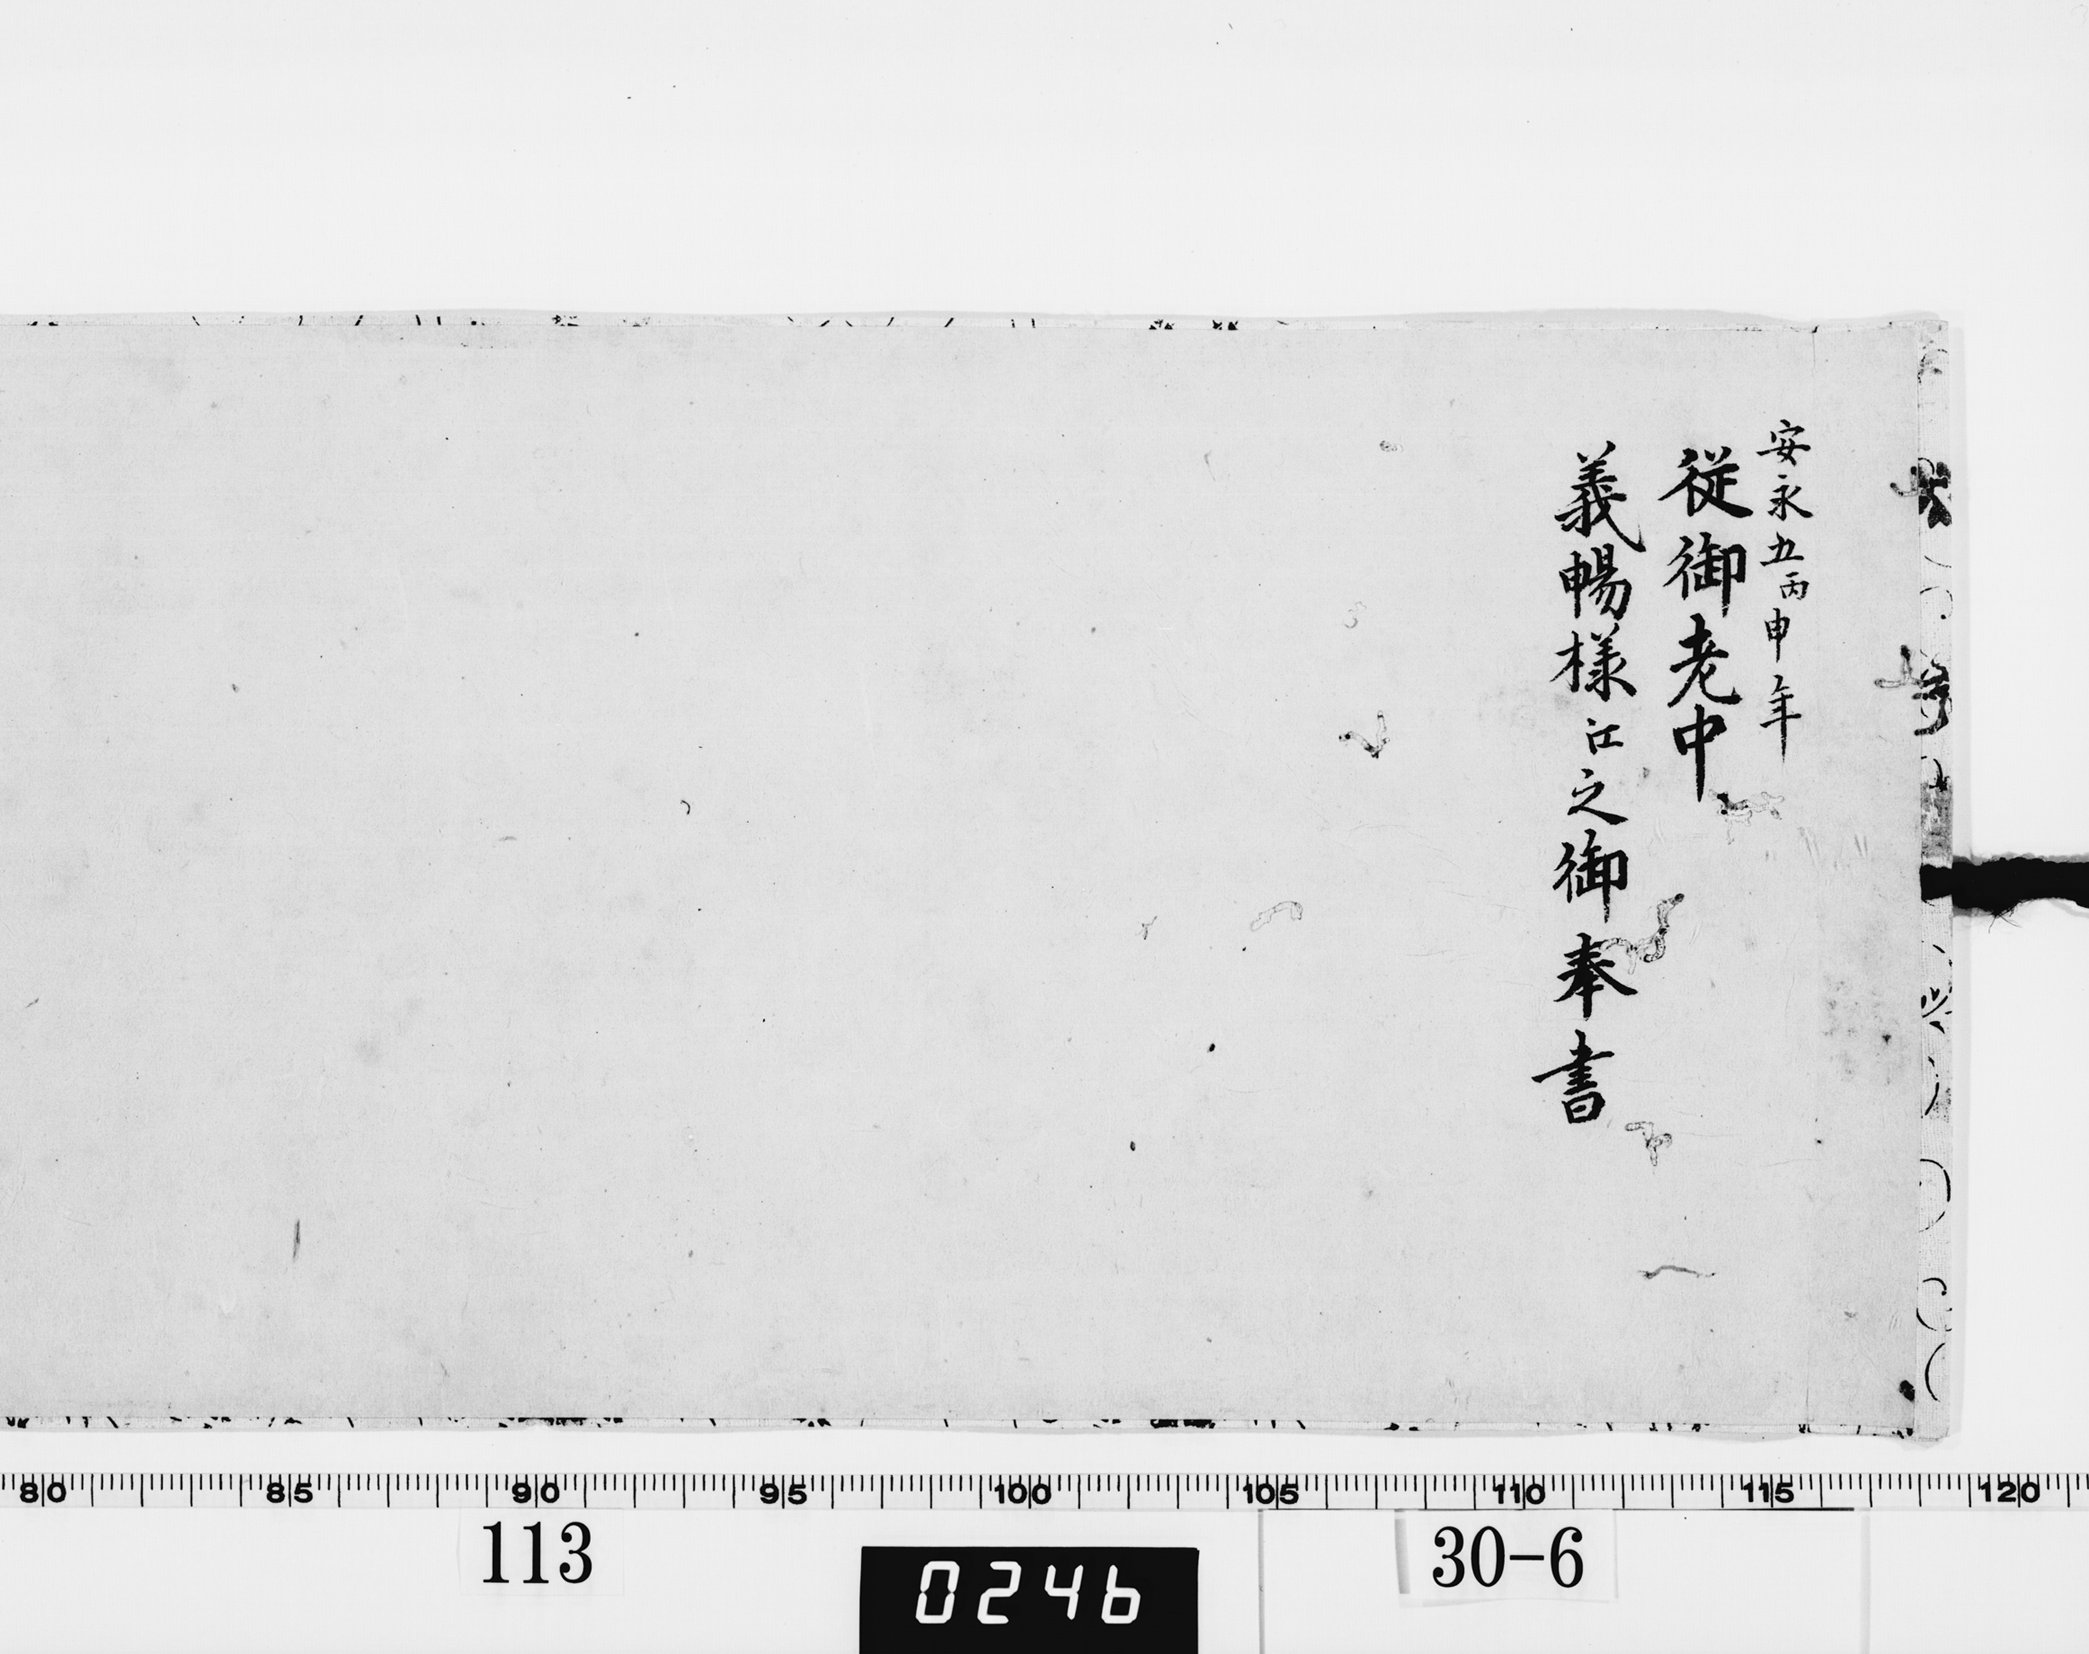 安永五丙申年
従御老中
義暢様江之御奉書
80 85 90 95 100 105 110 115 120
113
0246
30-6